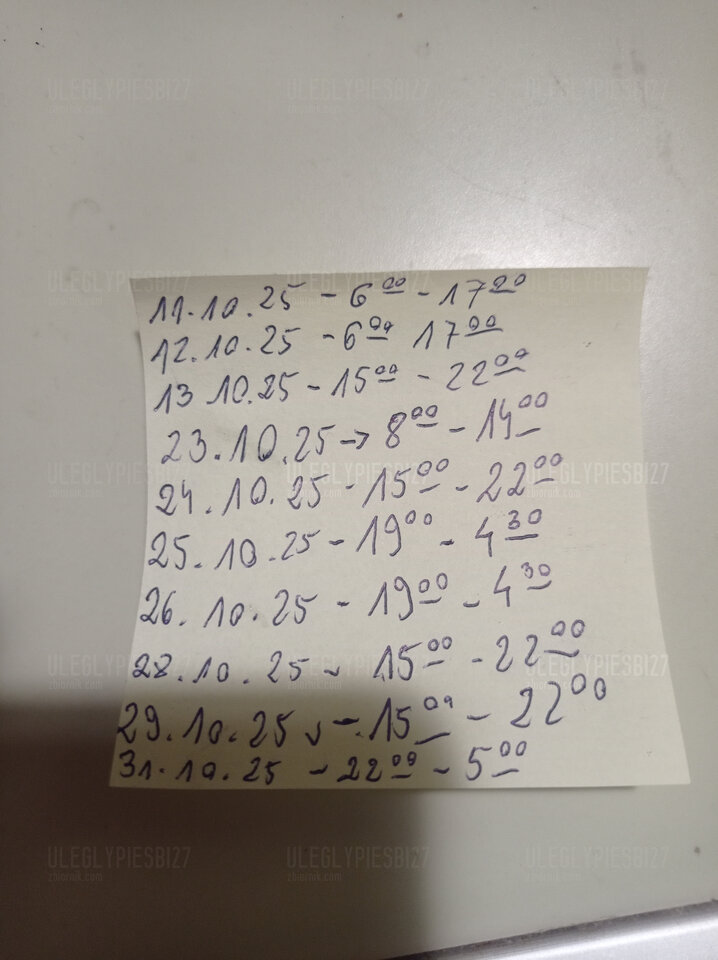 ULEGLYPIESBI27 ULEGLYPIESBI27 ULEGLYPIESBI27
zbiornik.com zbiornik.com zbiornik.com
11.10.25 - 6 00 - 17 00
12.10.25 - 6 00 17 00
13 10.25 - 15 00 - 22 00
23.10.25 -> 8 00 - 14 00
24.10.25 - 15 00 - 22 00
25.10.25 - 19 00 - 4 30
26.10.25 - 19 00 - 4 30
28.10.25 - 15 00 - 22 00
29.10.25 - 15 00 - 22 00
31.10.25 - 22 00 - 5 00
ULEGLYPIESBI27 ULEGLYPIESBI27 ULEGLYPIESBI27
zbiornik.com zbiornik.com zbiornik.com